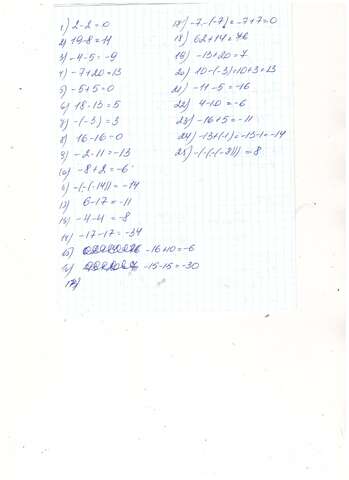 1) 2-2=0
2) 19-8=11
3) -4-5=-9
4) -7+20=13
5) -5+5=0
6) 18-13=5
7) -(-3)=3
8) 16-16=0
9) -2-11=-13
10) -8+2=-6
-(-(-14))=-14
13) 6-17=-11
-4-4=-8
14) -17-17=-34
-16+10=-6
-15-15=-30
17)
-7-(-7)=-7+7=0
18) 62+14=76
19) -13+20=7
20) 10-(-3)=10+3=13
21) -11-5=-16
22) 4-10=-6
23) -16+5=-11
24) -13+(-1)=-13-1=-14
25) -(-(-(-8)))=8